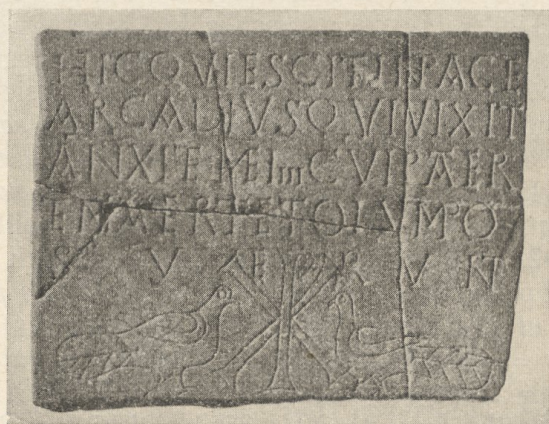 HIC QVIESCIT IN PACE
ARCADIVS QVI VIXIT
AN XI ET M IIII CVI PATER
ET MATER TETOLVM PO
SVERVNT